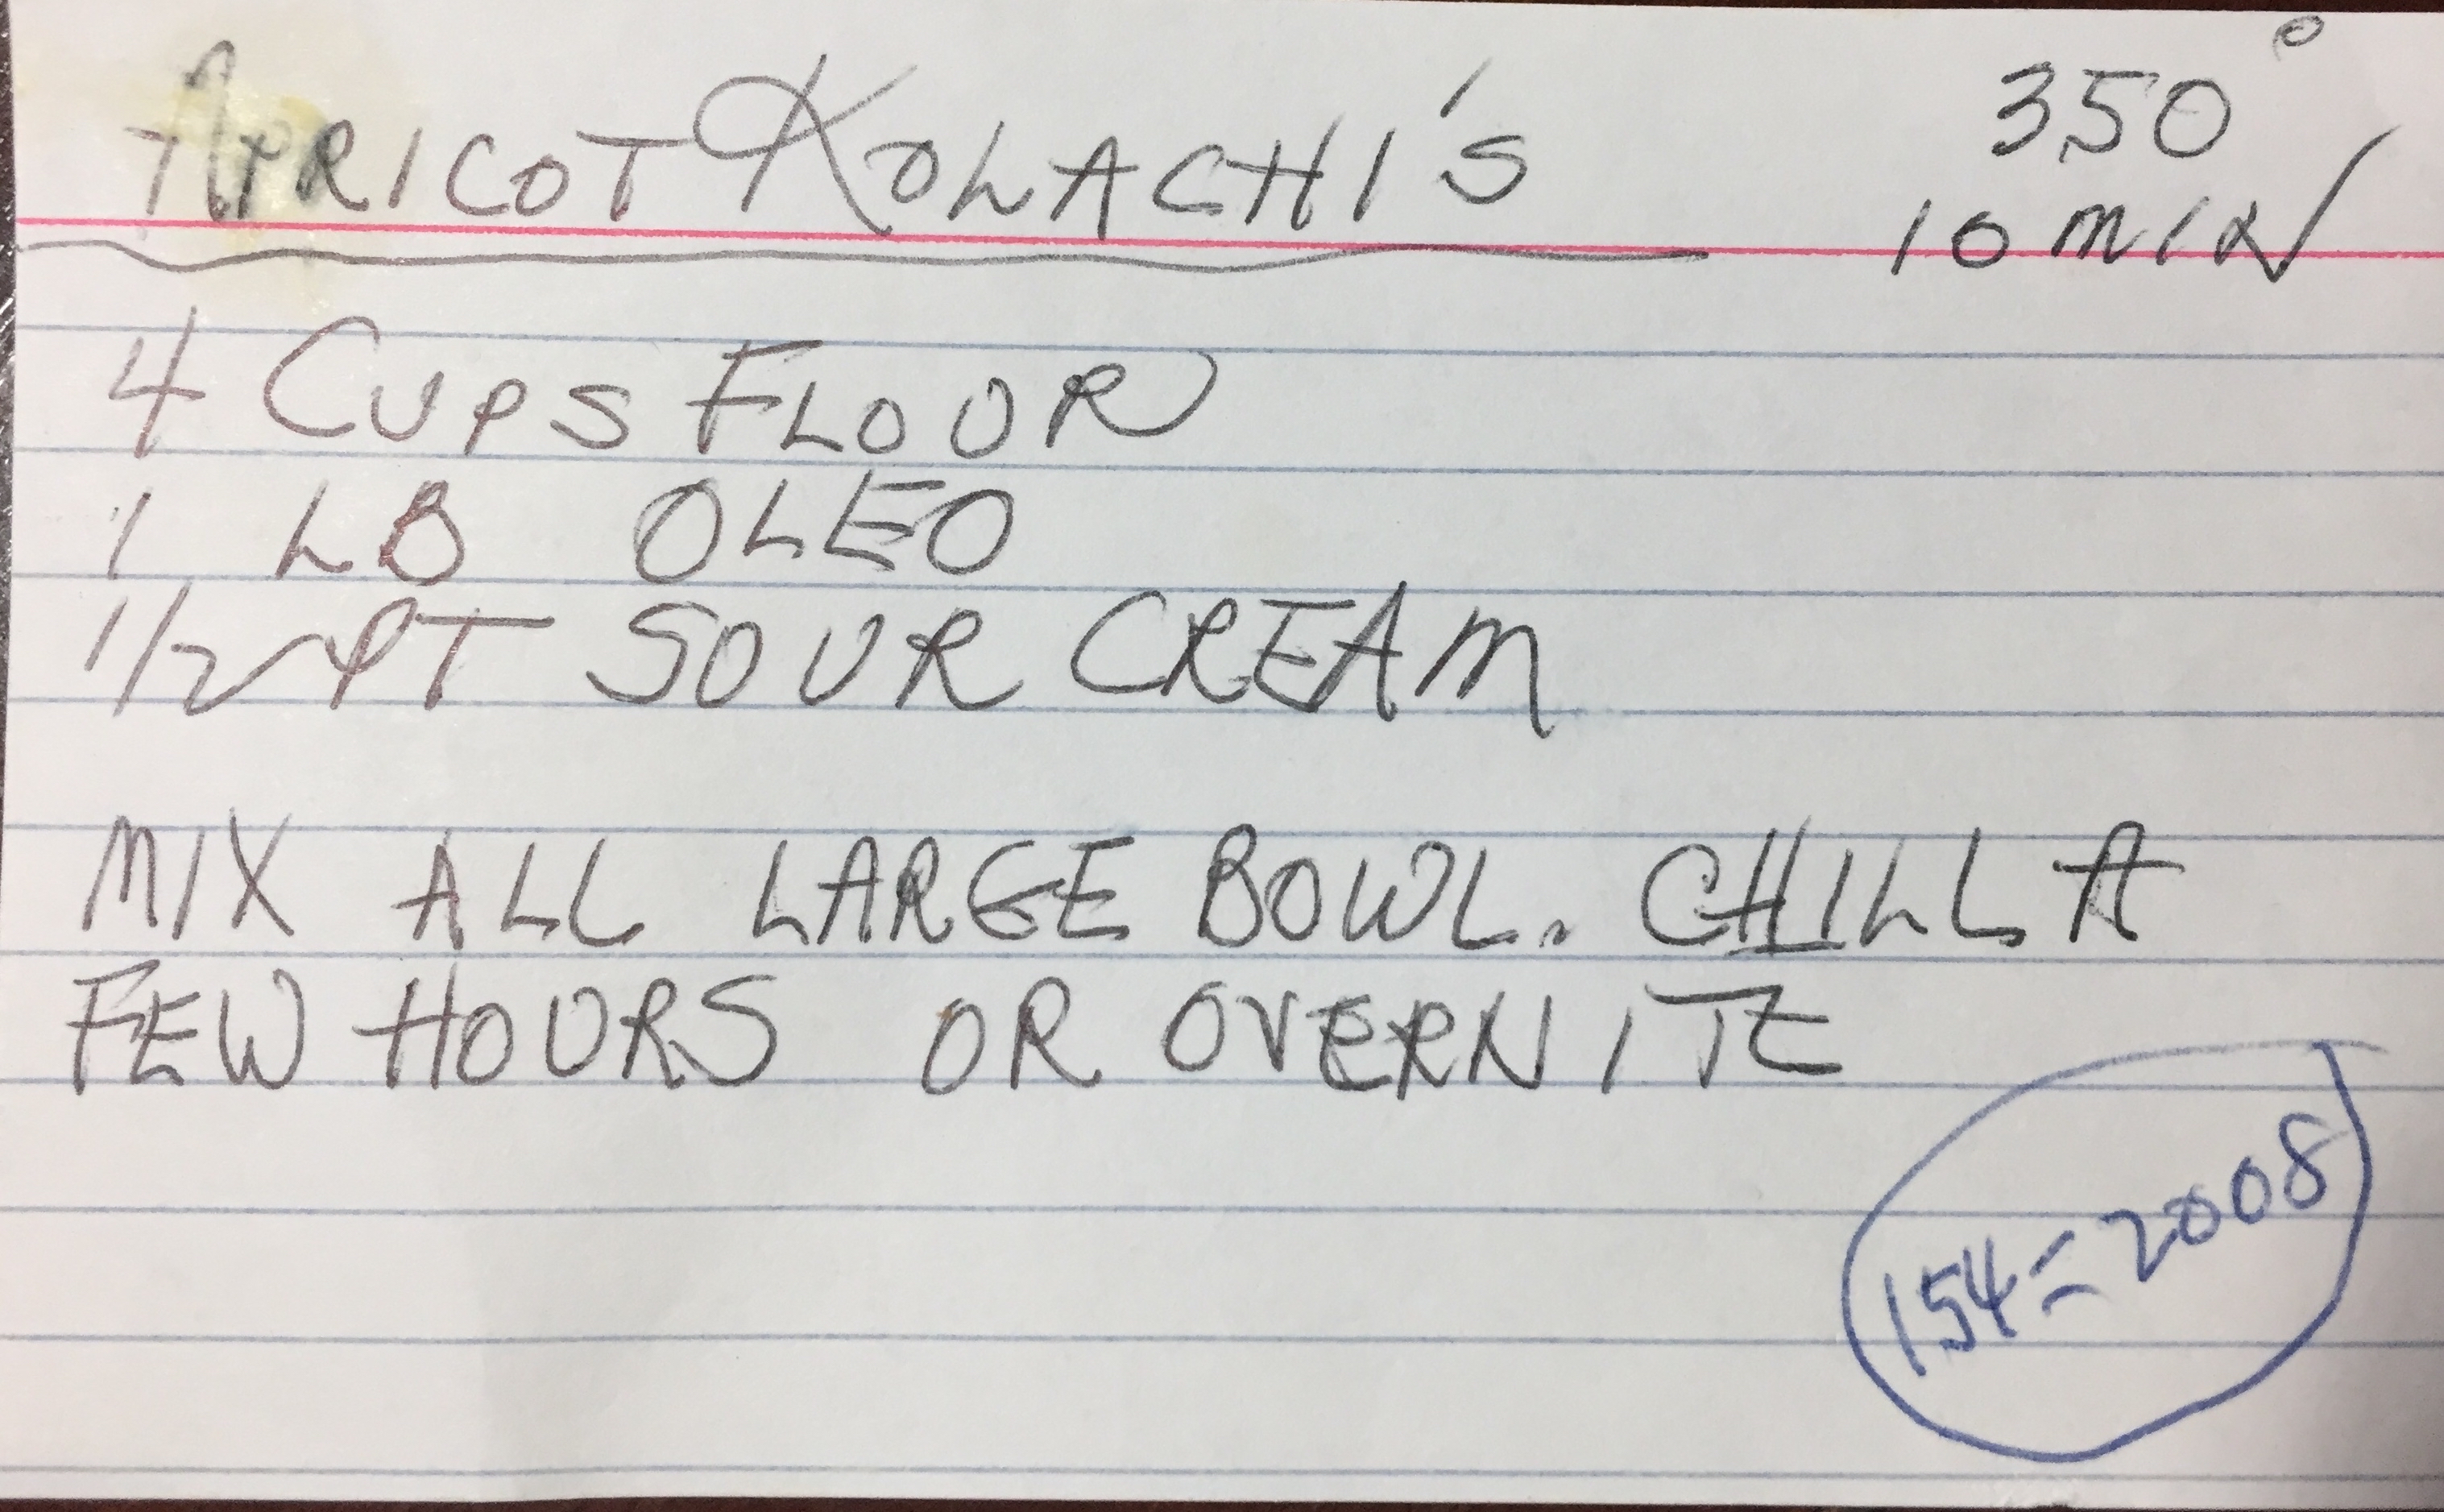 APRICOT KOLACHI'S
350°
10 MIN
4 CUPS FLOUR
1 LB OLEO
1/2 PT SOUR CREAM
MIX ALL LARGE BOWL. CHILL A
FEW HOURS OR OVERNITE
154=2008